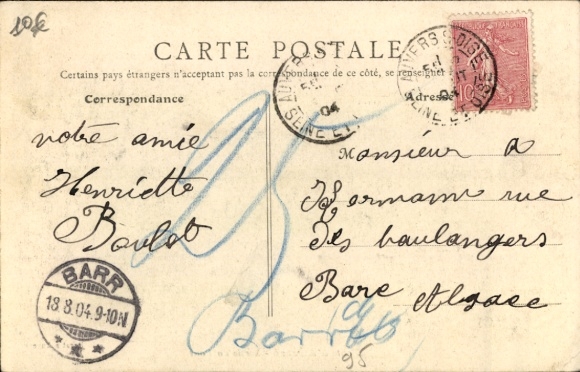 20€
CARTE POSTALE
Certains pays étrangers n'acceptent pas la correspondance de ce côté, se renseigner
Correspondance
Adresse
AUVERS S. OISE
04
SEINE ET OISE
10
votre amie
Henriette
Boulot
Monsieur
Hermann rue
des boulangers
Bare Alsace
25
Barr
95
BARR
18.8.04.9-10N